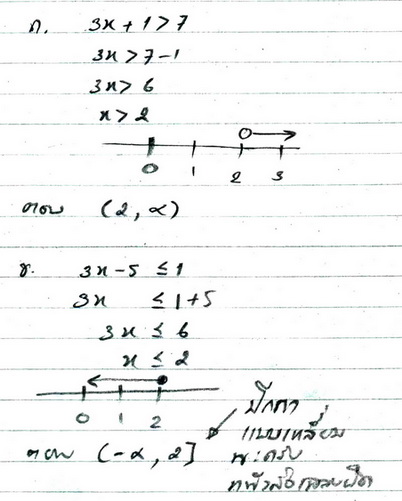 ก. 3x + 1 > 7
3x > 7 - 1
3x > 6
x > 2
0 1 2 3
ตอบ (2, ∝)
ข. 3x - 5 ≤ 1
3x ≤ 1 + 5
3x ≤ 6
x ≤ 2
0 1 2
ตอบ (-∝, 2]
ปีกกา
แบบเหลี่ยม
นะครับ